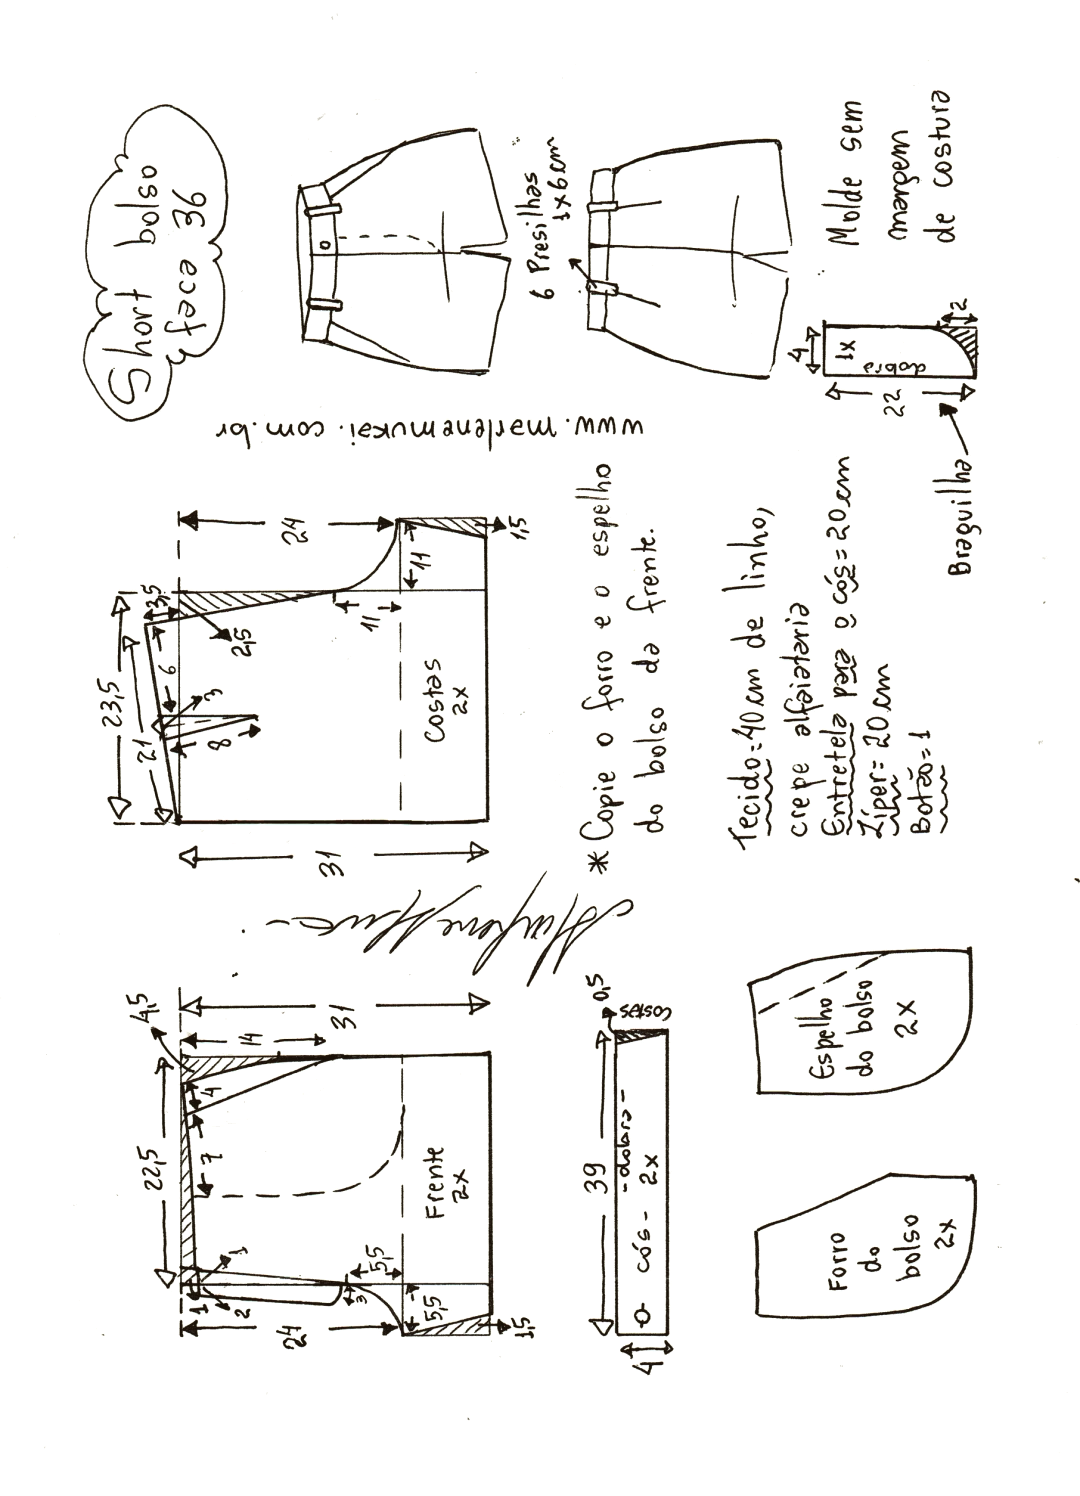 Short bolso
faca 36
6 Presilhas
1x6cm
Molde sem
margem
de costura
4
1x
dobra
22
2
Braguilha
www.marlenemukai.com.br
24
1,5
11
11
3,5
2,5
23,5
21
6
3
8
Costas
2x
31
* Copie o forro e o espelho
do bolso da frente.
Tecido=40cm de linho,
crepe alfaiataria
Entretela para o cós=20cm
Zíper=20cm
Botão=1
4,5
14
31
22,5
4
7
Frente
2x
1
1
2
3
5,5
5,5
24
1,5
0,5
costas
39
-dobra-
cós - 2x
4
Espelho
do bolso
2x
Forro
do
bolso
2x